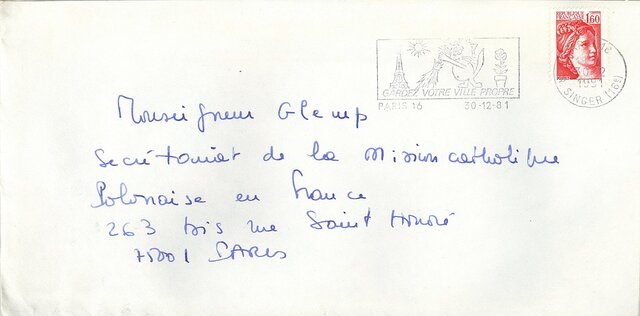 REPUBLIQUE FRANCAISE
1,60
GARDEZ VOTRE VILLE PROPRE
PARIS 16 30-12-81
1981
SINGER (16e)
Monseigneur Glemp
Secrétariat de la Mission catholique
Polonaise en France
263 bis rue Saint Honoré
75001 PARIS